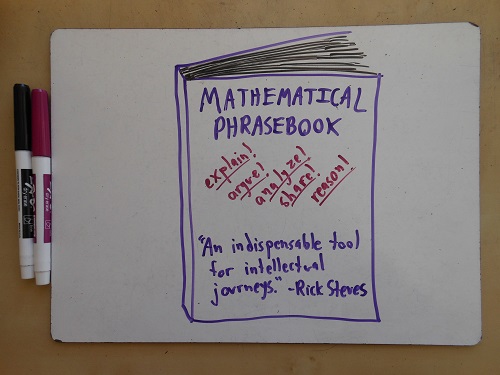 MATHEMATICAL
PHRASEBOOK
explain!
argue!
analyze!
share!
reason!
"An indispensable tool
for intellectual
journeys." -Rick Steves